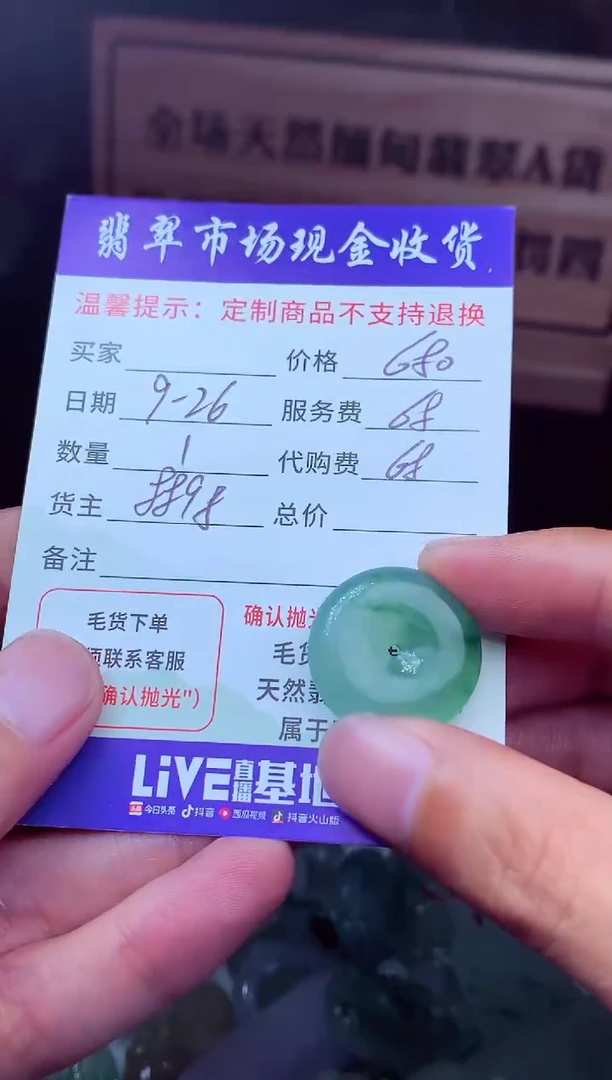 全场天然缅甸翡翠A货
翡翠市场现金收货
温馨提示：定制商品不支持退换
买家 价格 680
日期 9-26 服务费 68
数量 1 代购费 68
货主 8898 总价
备注
毛货下单 确认抛
联系客服 毛
确认抛光") 天然
属于
LiVE直播基地
头条 今日头条 抖音 西瓜视频 抖音火山版